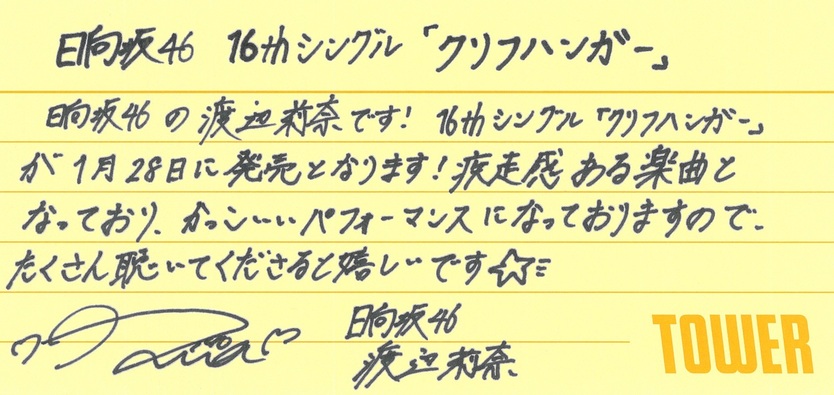 日向坂46 16thシングル「クリフハンガー」
日向坂46の渡辺莉奈です！ 16thシングル「クリフハンガー」
が1月28日に発売となります！疾走感ある楽曲と
なっており、かっこいいパフォーマンスになっておりますので、
たくさん聴いてくださると嬉しいです☆
Rina
日向坂46
渡辺莉奈
TOWER